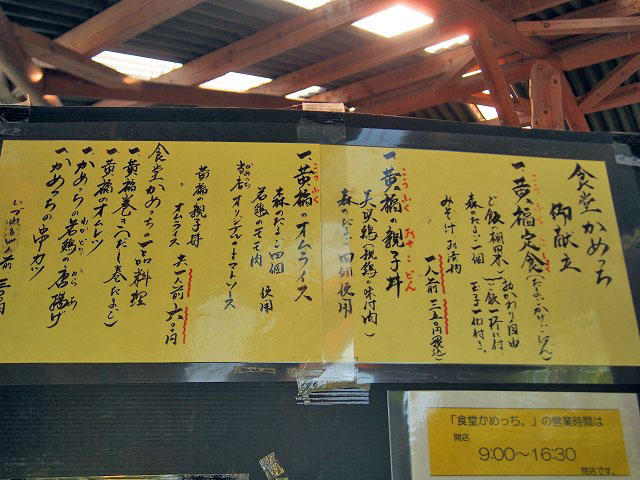 食堂かめっち
御献立
一、黄福定食(たまごかけごはん)
こうふくていしょく
ご飯(棚田米)おかわり自由
(ご飯一杯に付
玉子一個付き。
森のたまご一個
みそ汁 お漬物
一人前 三五〇円(税込)
一、黄福の親子丼
こうふく おやこどん
美咲鶏(親鶏の味付肉)
森のたまご四個使用
一、黄福のオムライス
こうふく
森のたまご四個 使用
若鶏のモモ肉
当店オリジナルトマトソース
黄福の親子丼
〃 オムライス 共、一人前 六〇〇円
食堂かめっち一品料理
一、黄福巻き(だし巻たまご)
一、黄福のオムレツ
一、かめっちの若鶏の唐揚げ
わかどり からあ
一、かめっちの串カツ
「食堂かめっち。」の営業時間は
開店
9:00~16:30
閉店です。